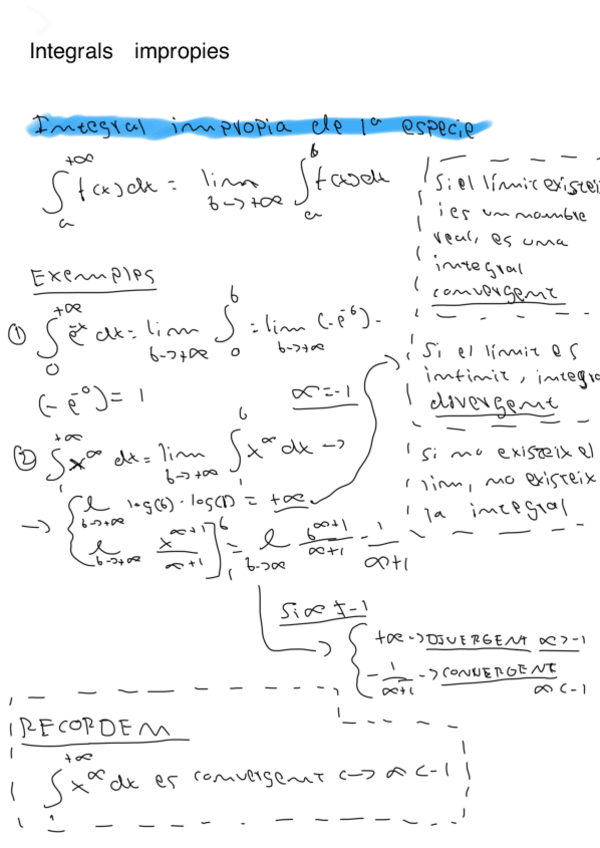 Integrals impropies
Integral impropia de 1ª especie
∫ₐ^{+∞} f(x)dx = lim_{b->+∞} ∫ₐ^b f(x)dx
Si el límit existei
i es un nombre
real, es una
integral
convergent
Si el límit es
infinit, integra
divergent
si no existeix el
lim, no existeix
la integral
Exemples
① ∫₀^{+∞} e^{-x} dx = lim_{b->+∞} ∫₀^b = lim_{b->+∞} (-e^{-b}) -
(-e^{-0}) = 1
α = -1
② ∫₁^{+∞} x^α dx = lim_{b->+∞} ∫₁^b x^α dx ->
-> { l_{b->+∞} log(b) · log(1) = +∞
l_{b->+∞} x^{α+1}/(α+1) ]₁^b = l_{b->∞} b^{α+1}/(α+1) - 1/(α+1)
Si α ≠ -1
{ +∞ -> DIVERGENT α > -1
-1/(α+1) -> CONVERGENT
α < -1
RECORDEM
∫₁^{+∞} x^α dx es convergent <-> α < -1